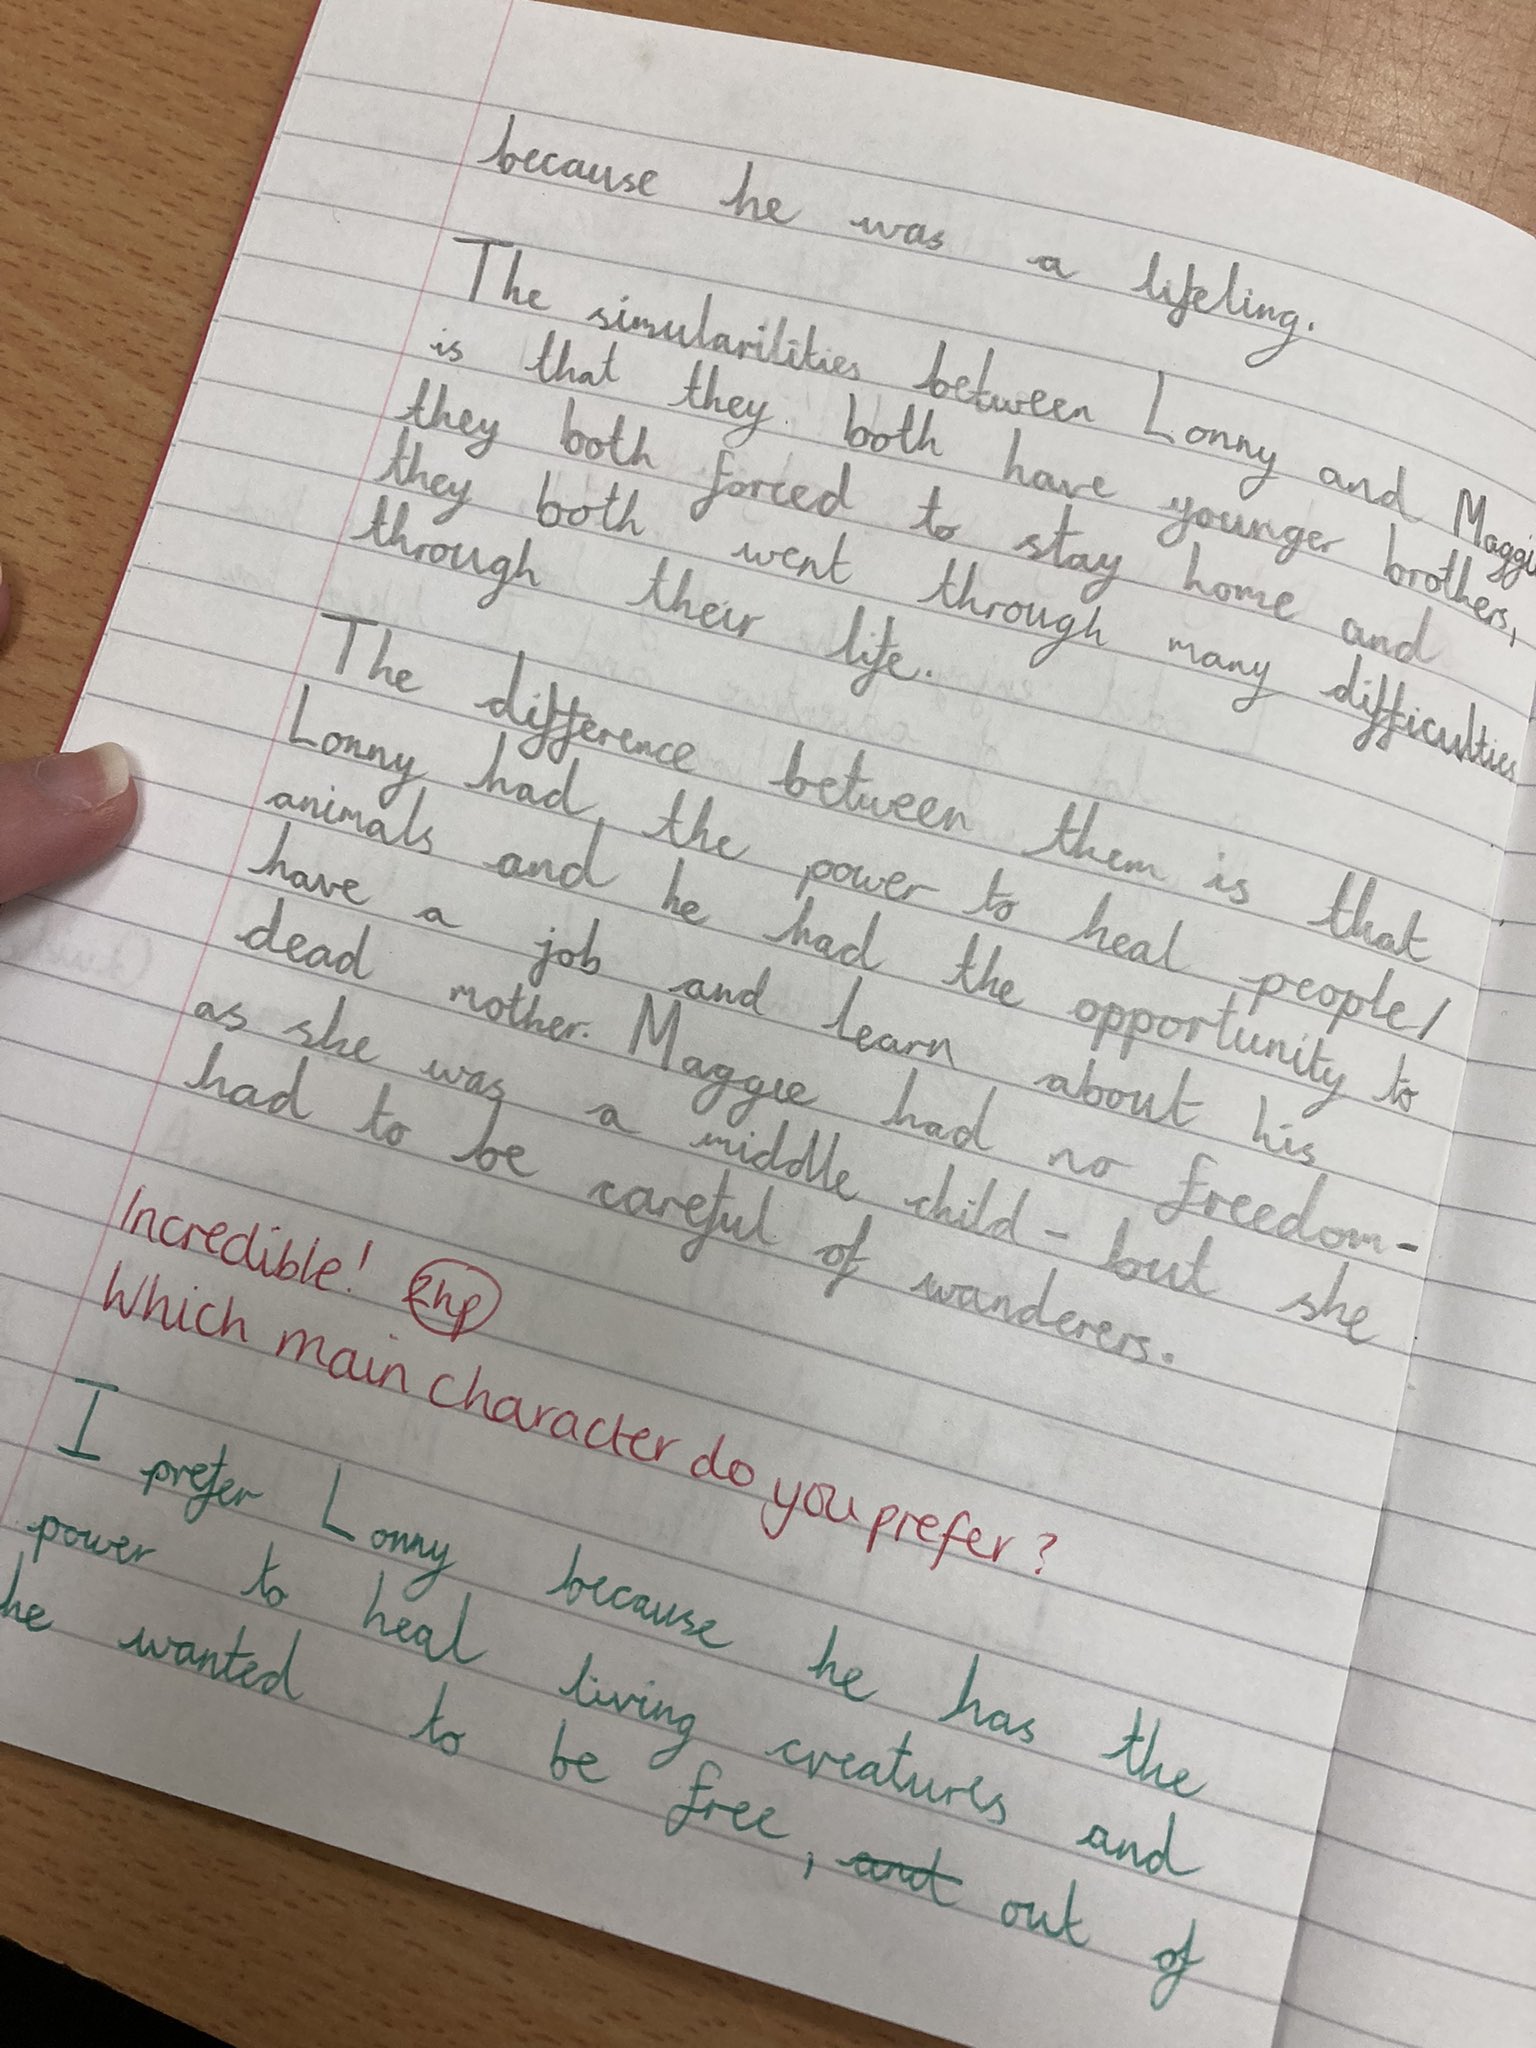 because he was a lifeling.
The simularilities between Lonny and Maggie
is that they both have younger brothers,
they both forced to stay home and
they both went through many difficulties
through their life.
The difference between them is that
Lonny had the power to heal people/
animals and he had the opportunity to
have a job and learn about his
dead mother. Maggie had no freedom-
as she was a middle child - but she
had to be careful of wanderers.
Incredible! 2hp
Which main character do you prefer?
I prefer Lonny because he has the
power to heal living creatures and
he wanted to be free, and out of